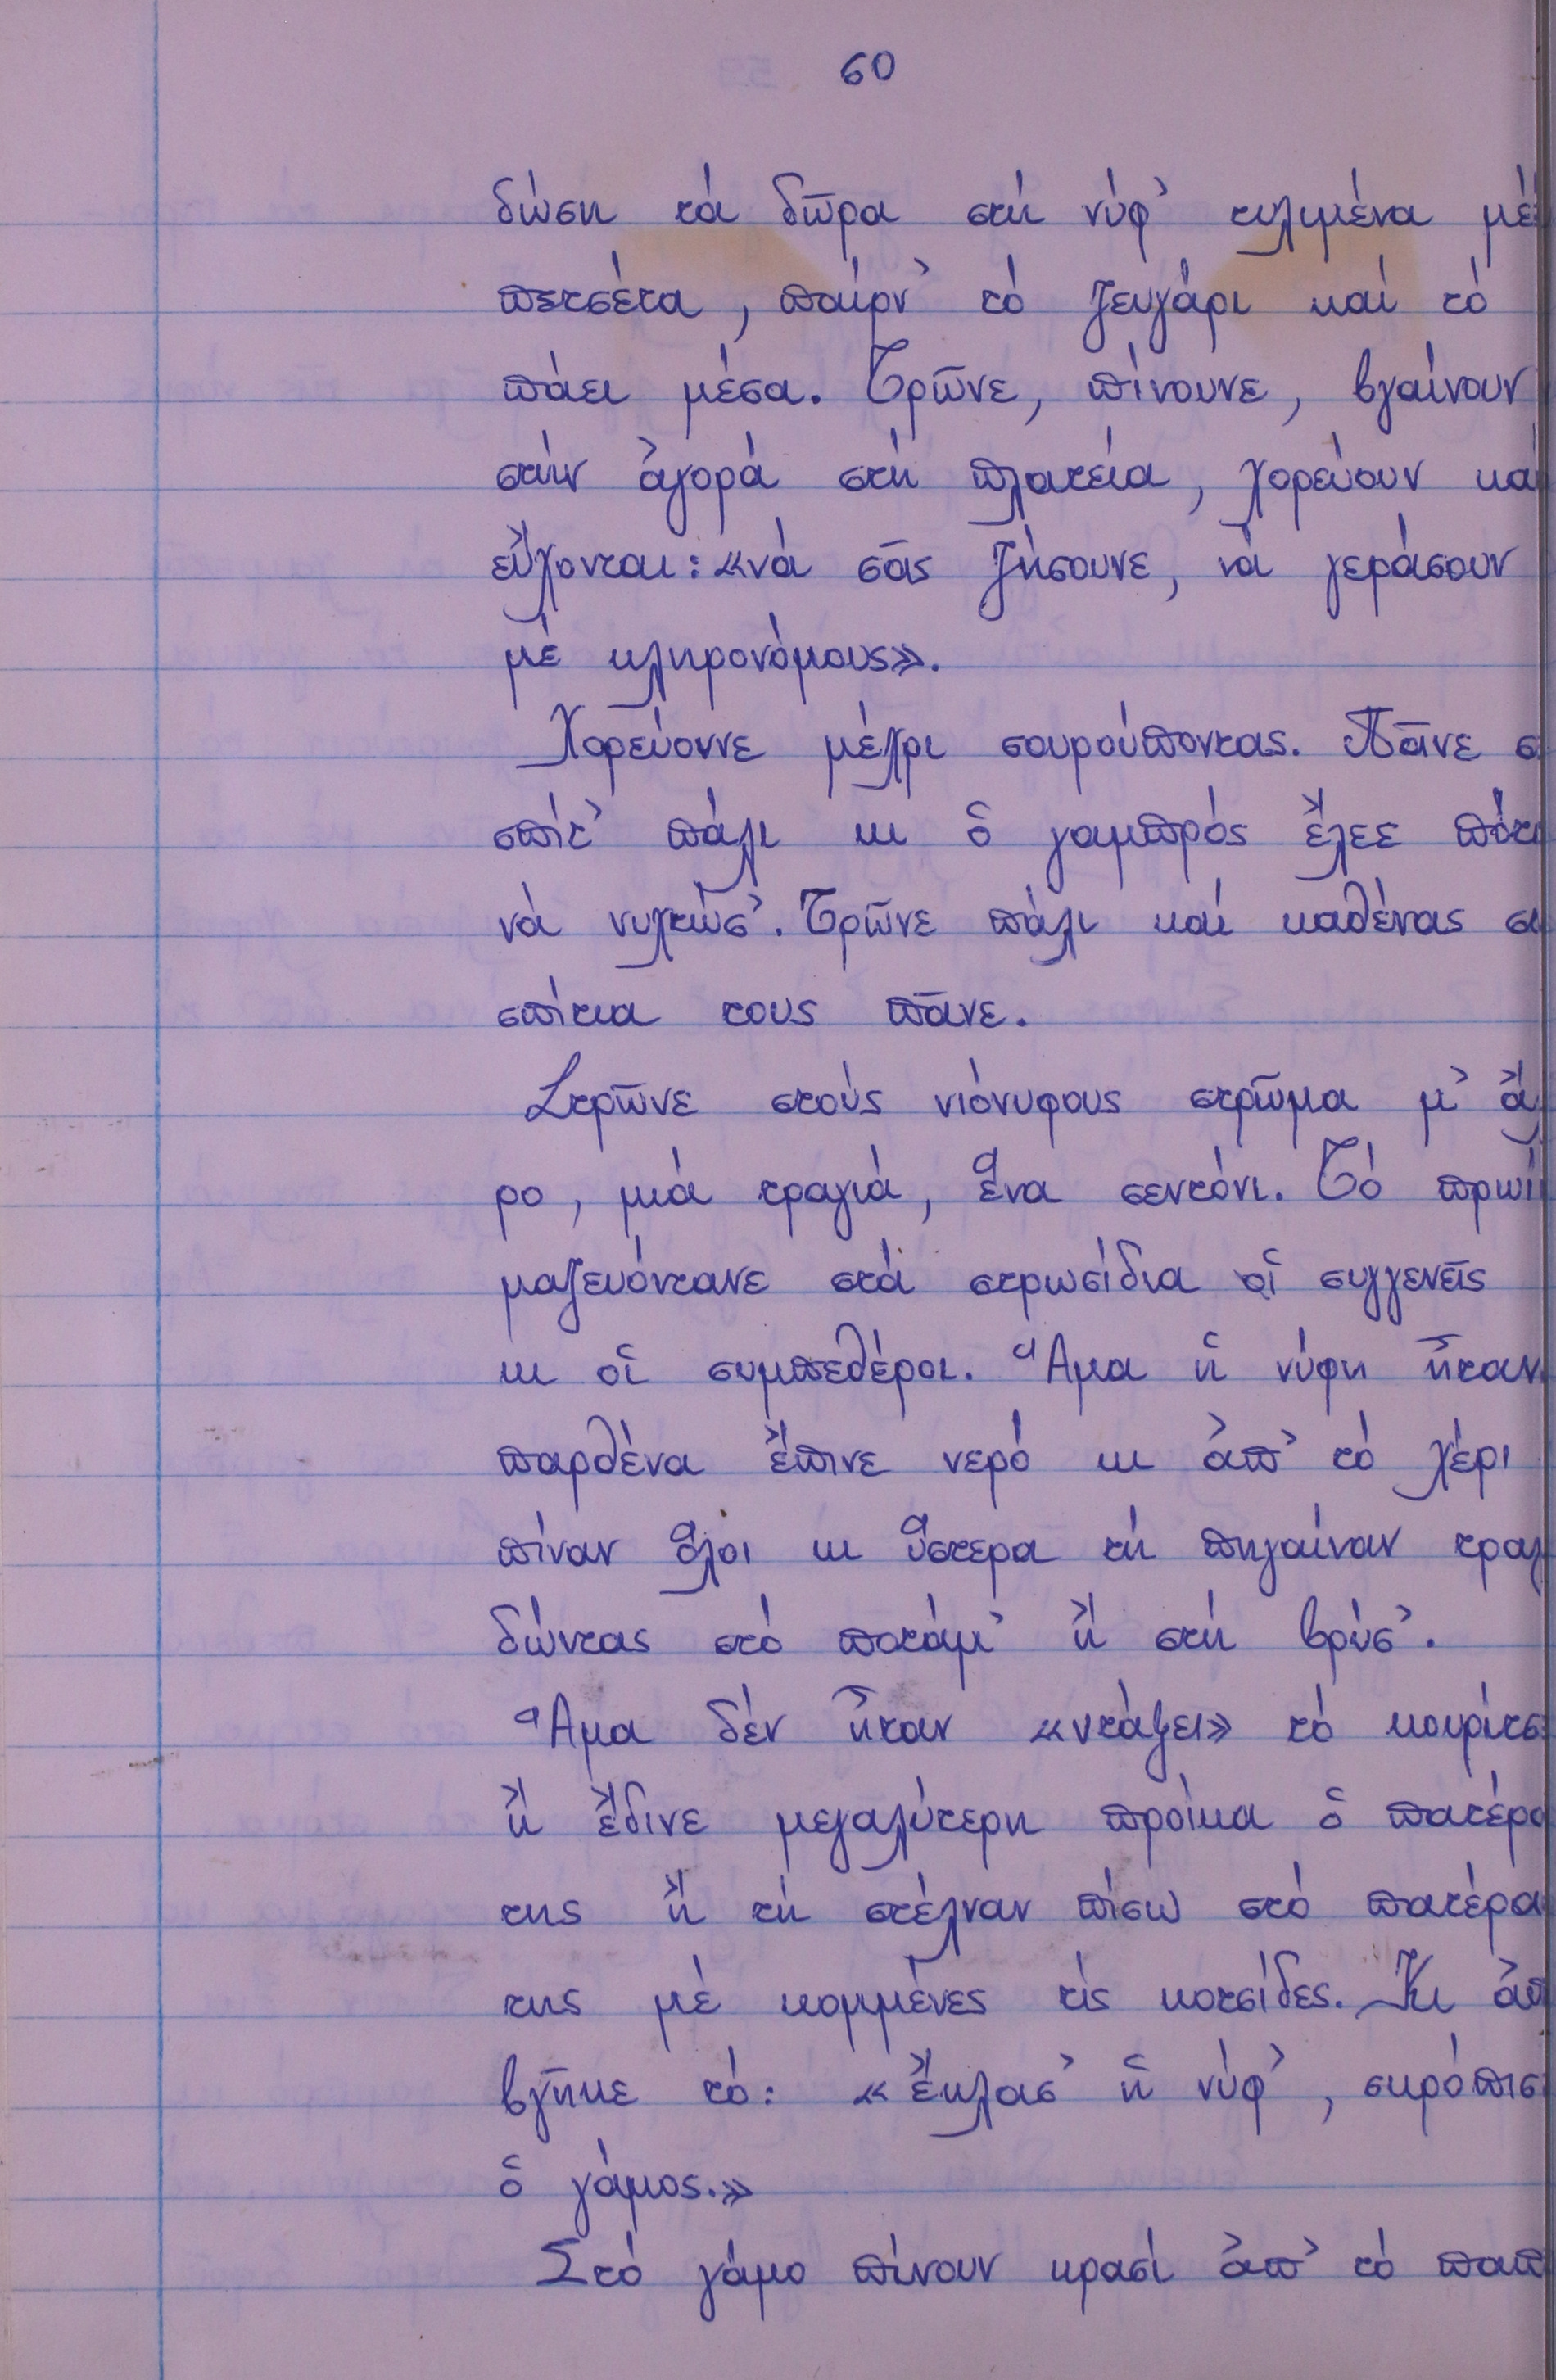 60
δώση τά δῶρα στή νύφ' τυλιμένα μέ
πετσέτα, παίρν' τό ζευγάρι καί τό
πάει μέσα. Τρῶνε, πίνουνε, βγαίνουν
στήν ἀγορά στή πλατεία, χορεύουν καί
εὔχονται: «νά σᾶς ζήσουνε, νά γεράσουν
μέ κληρονόμους».
Χορεύουνε μέχρι σουρούποντας. Πᾶνε σ
σπίτ' πάλι κι ὁ γαμπρός ἔλεε πότε
νά νυχτώσ'. Τρῶνε πάλι καί καθένας σ
σπίτια τους πᾶνε.
Στρῶνε στούς νιόνυφους στρῶμα μ' ἄχ
ρο, μιά τραγιά, ἕνα σεντόνι. Τό πρωί
μαζευόντανε στά στρωσίδια οἱ συγγενεῖς
κι οἱ συμπεθέροι. Ἅμα ἡ νύφη ἦταν
παρθένα ἔπινε νερό κι ἀπ' τό χέρι
πίναν ὅλοι κι ὕστερα τή πηγαίναν τραγ
δώντας στό ποτάμ' ἤ στή βρύσ'.
Ἅμα δέν ἦταν «ντάξει» τό κουρίτσ
ἤ ἔδινε μεγαλύτερη προίκα ὁ πατέρα
της ἤ τή στέλναν πίσω στό πατέρα
της μέ κομμένες τίς κοτσίδες. Κι ἀπ
βγῆκε τό: «ἔκλασ' ἡ νύφ', σκρόπισ
ὁ γάμος.»
Στό γάμο πίνουν κρασί ἀπ' τό παπ